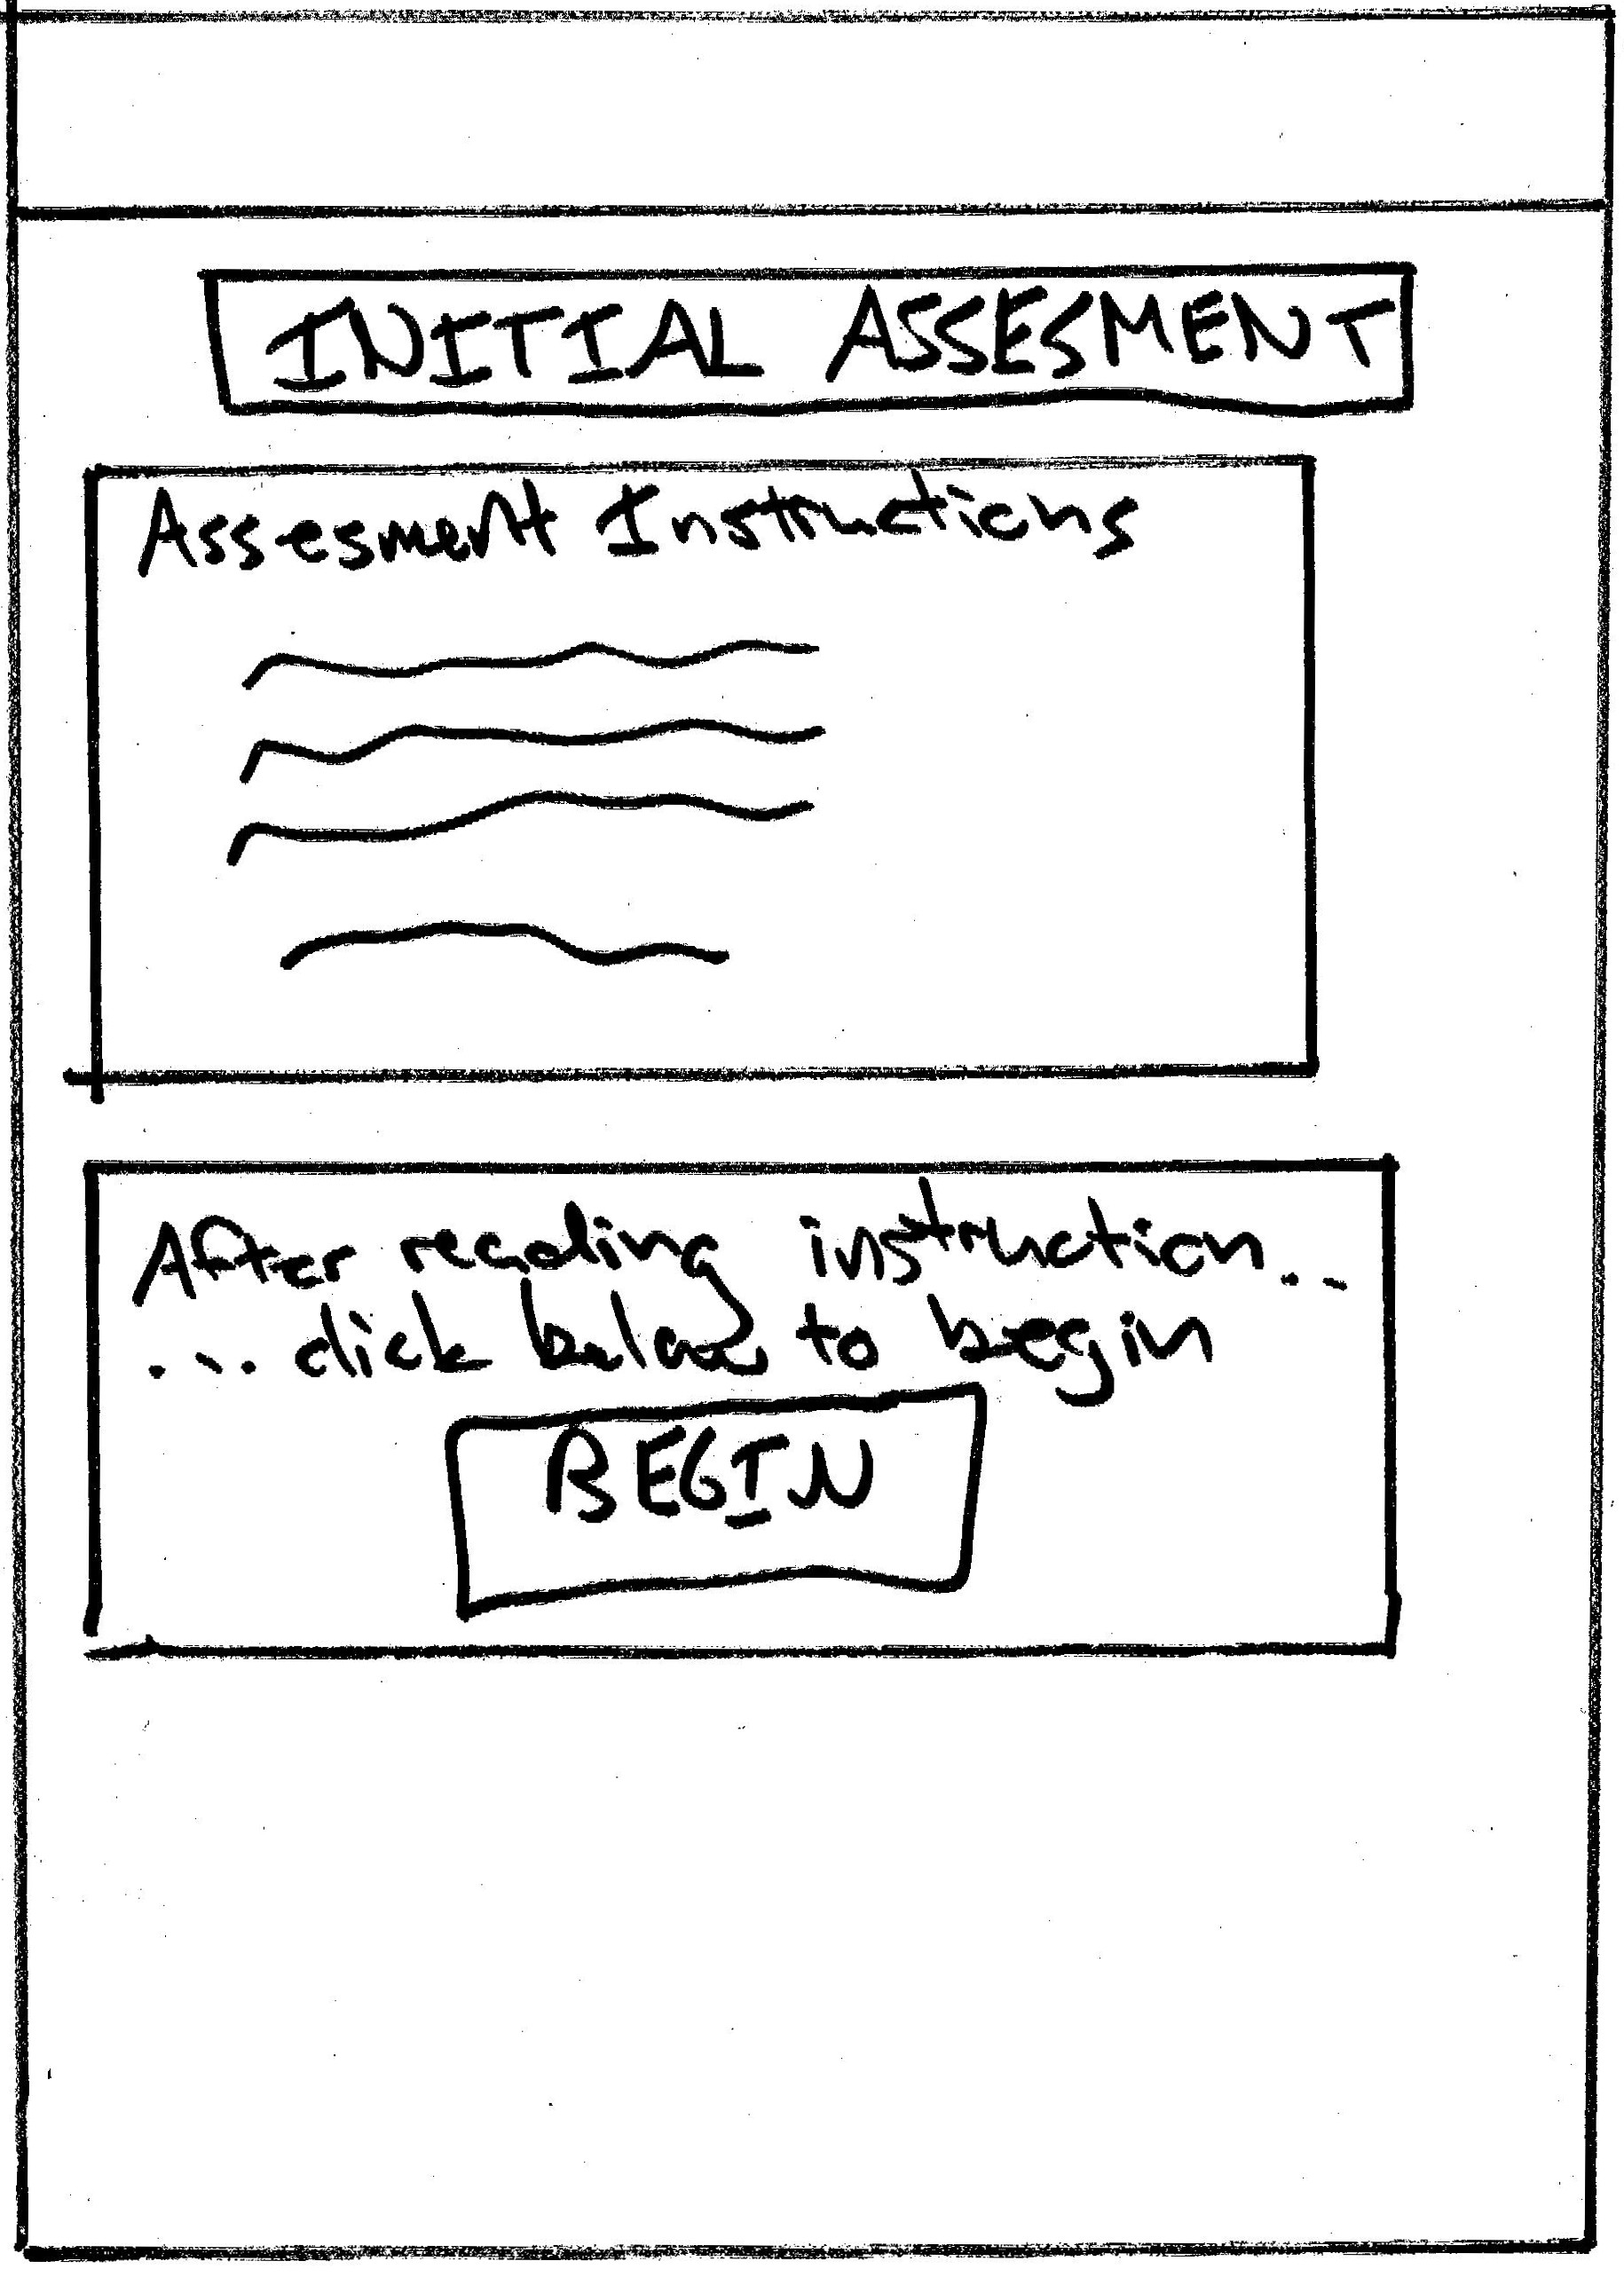 INITIAL ASSESMENT
Assesment Instructions
After reading instruction...
... click below to begin
BEGIN